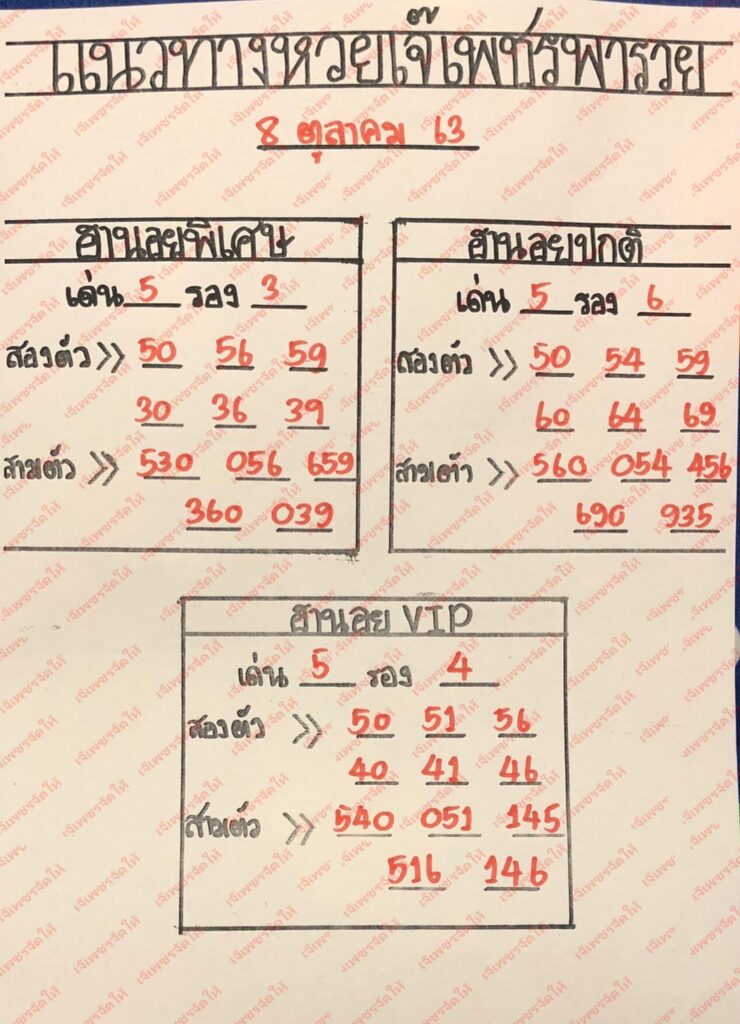 แนวทางหวยเจ๊เพชรพารวย
8 ตุลาคม 63
ฮานอยพิเศษ
เด่น 5 รอง 3
สองตัว >> 50 56 59
30 36 39
สามตัว >> 530 056 659
360 039
ฮานอยปกติ
เด่น 5 รอง 6
สองตัว >> 50 54 59
60 64 69
สามตัว >> 560 054 456
690 935
ฮานอย VIP
เด่น 5 รอง 4
สองตัว >> 50 51 56
40 41 46
สามตัว >> 540 051 145
516 146
เจ๊เพชรจัดให้